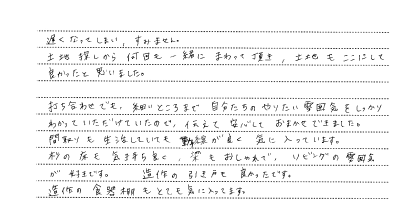 遅くなってしまい、すみません。
土地探しから何回も一緒にまわって頂き、土地もここにして
良かったと思いました。
打ち合わせでも、細いところまで自分たちのやりたい雰囲気をしっかり
わかっていただけていたので、伝えて安心しておまかせできました。
間取りも生活していても動線が良く気に入っています。
杉の床も気持ち良く、梁もおしゃれで、リビングの雰囲気
が好きです。 造作の引き戸も良かったです。
造作の食器棚もとても気に入ってます。